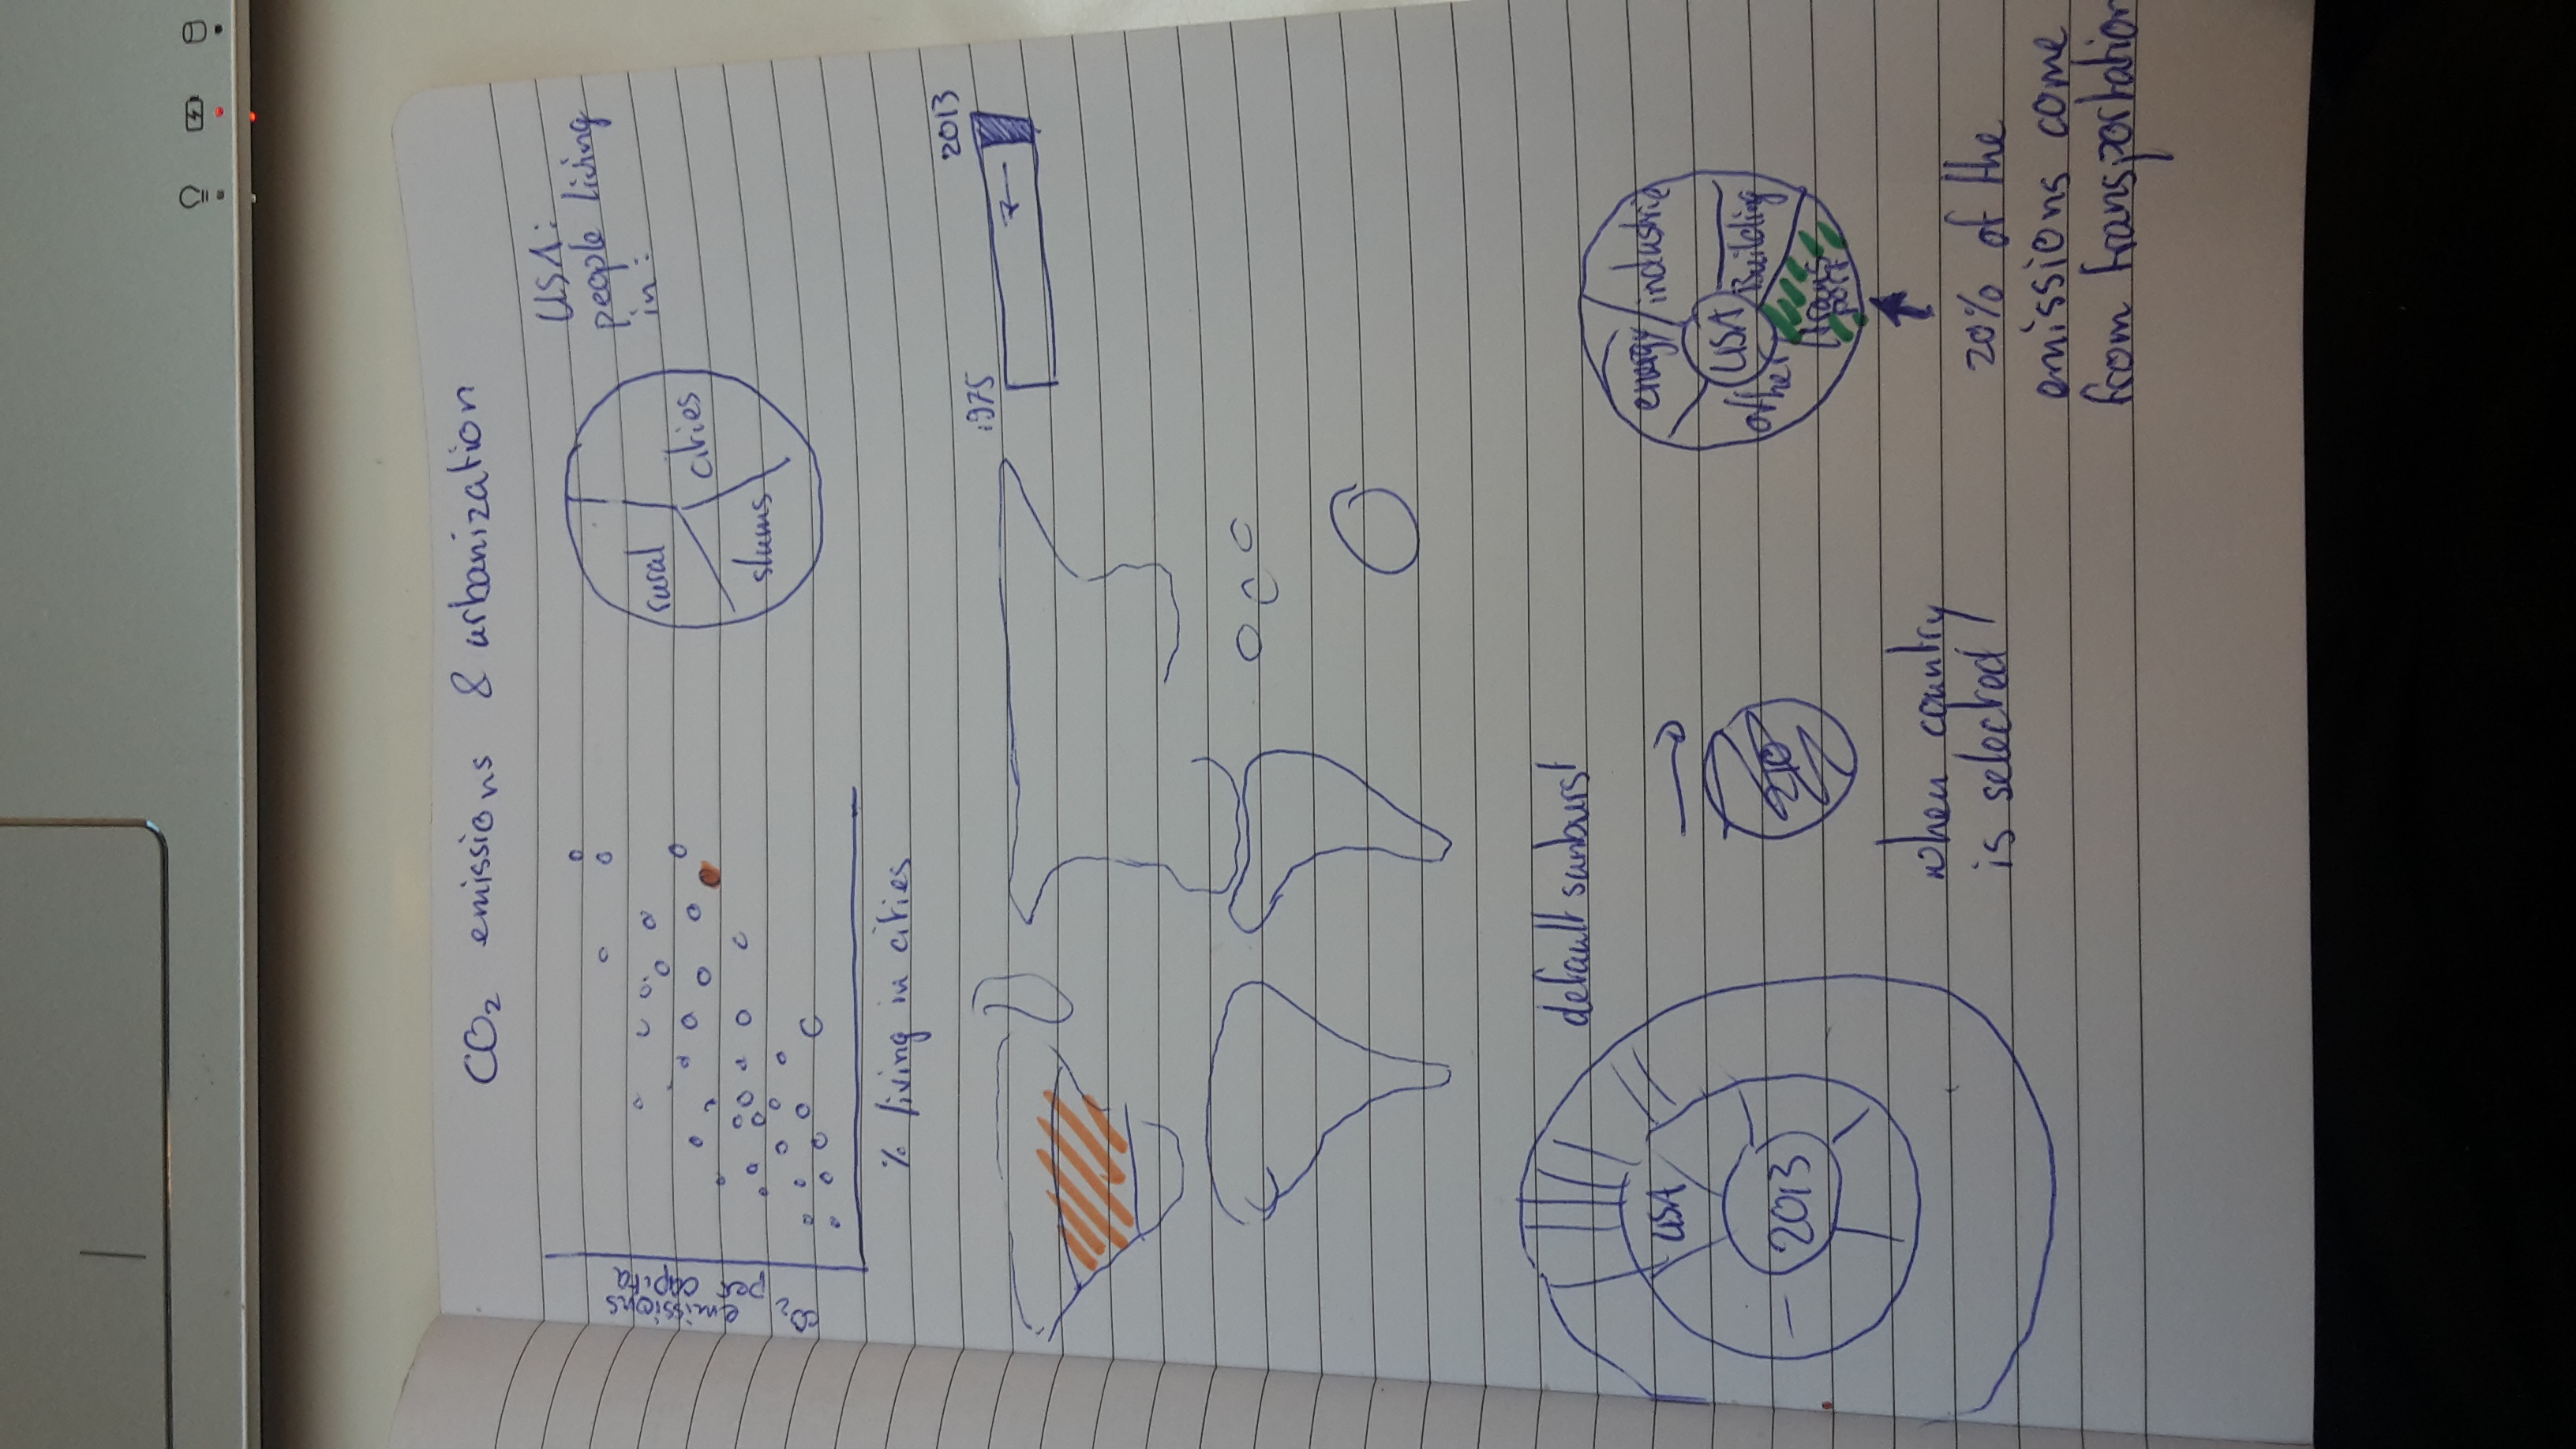 CO₂ emissions & urbanization
CO₂ emissions
per capita
% living in cities
rural
cities
slums
USA:
people living
in:
1975
2013
default sunburst
USA
2013
when country
is selected
energy
industrie
USA
Building
other
trans
port
20% of the
emissions come
from transportation